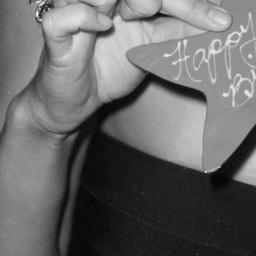 Happy
Bi